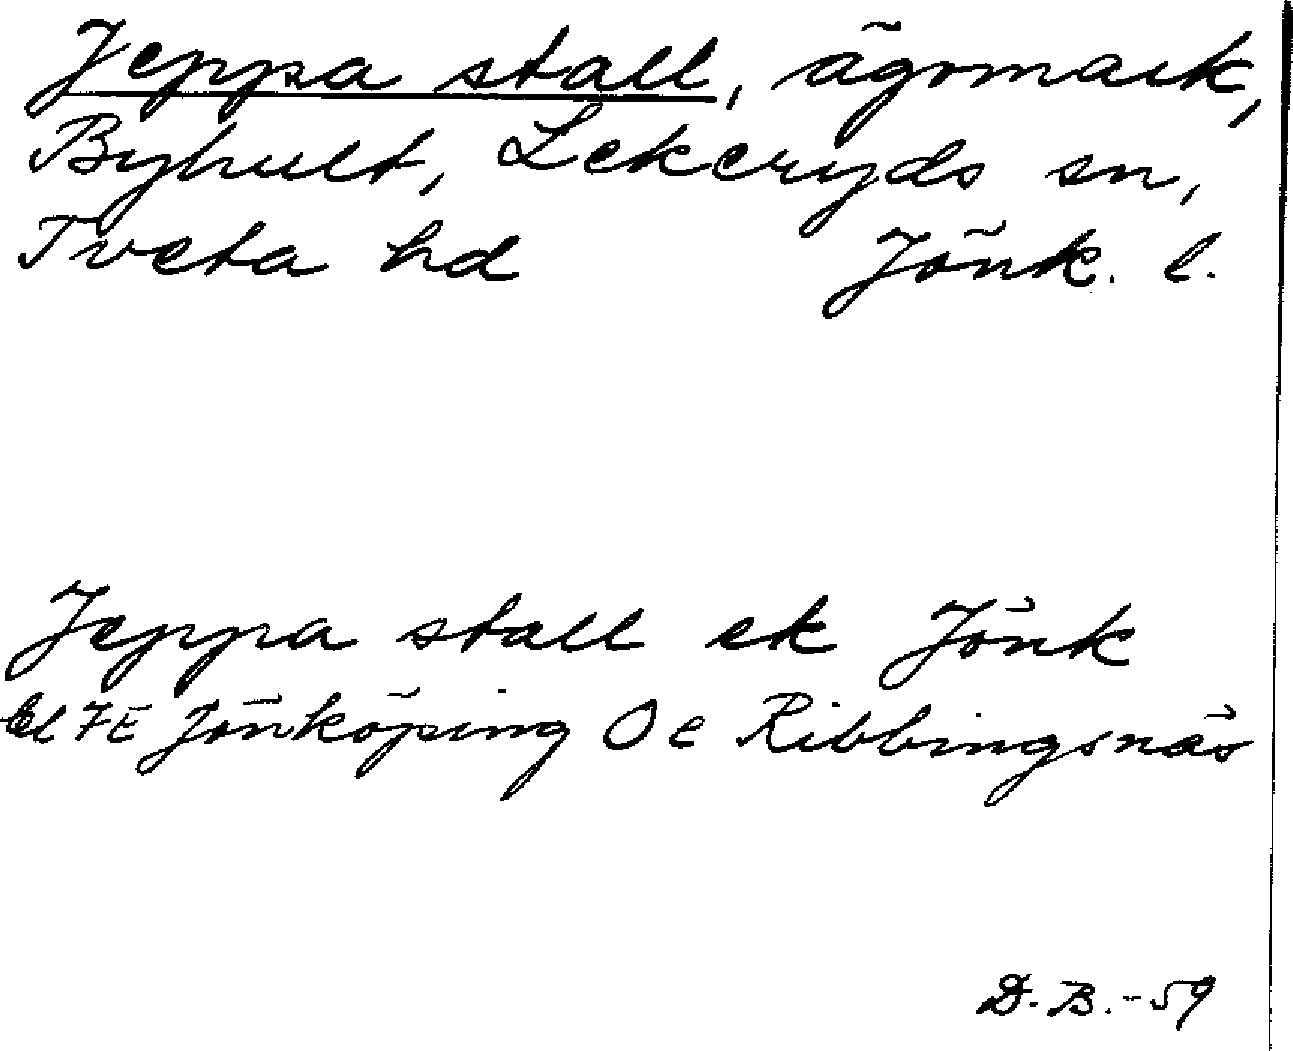 Jeppa stall, ägomark,
Byhult, Lekeryds sn,
Tveta hd Jönk. l.
Jeppa stall ek Jönk
bl 7E Jönköping Oe Ribbingsnäs
D.B.-59